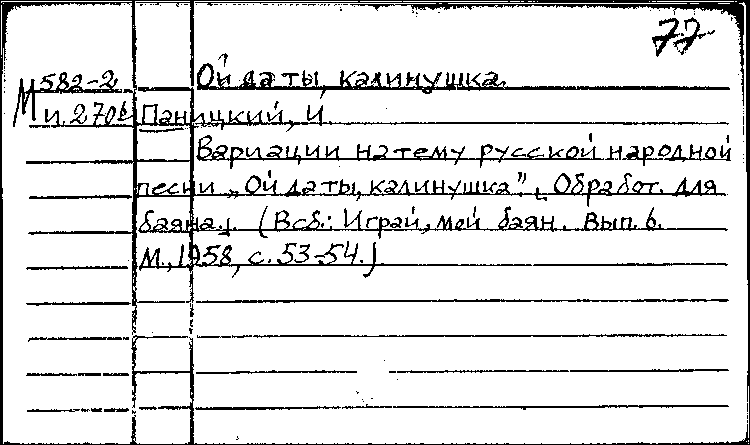 77
М 582-2 Ой да ты, калинушка.
и. 270б Паницкий, И.
Вариации на тему русской народной
песни „Ой да ты, калинушка". [Обработ. для
баяна]. (В сб.: Играй, мой баян. Вып. 6.
М., 1958, с. 53-54.)